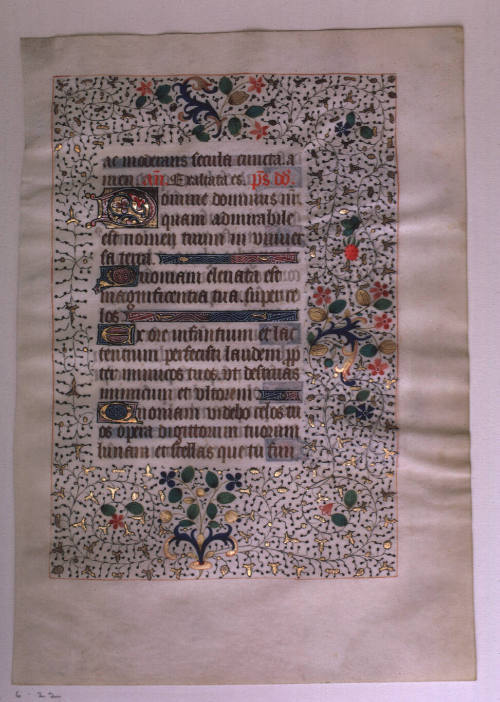 ac moderans secula cuncta a
men añ Exaltata es. ps dd
Domine dominus nr
quam admirabile
est nomen tuum in univer
sa terra
Quoniam elevata est
magnificentia tua super ce
los
Ex ore infantium et lac
tentium perfecisti laudem pp
ter inimicos tuos ut destruas
inimicum et ultorem
Quoniam videbo celos tu
os opera digitorum tuorum
lunam et stellas que tu fun
6.22